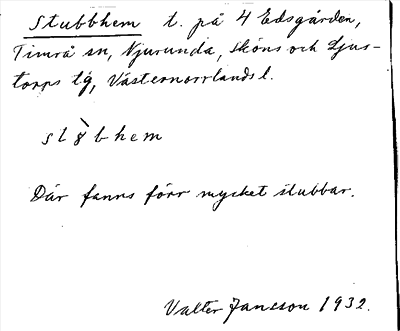 Stubbhem t. på 4 Edsgården,
Timrå sn, Njurunda, Sköns och Ljus-
torps tg, Västernorrlands l.
st8̀bhem
Där fanns förr mycket stubbar.
Valter Jansson 1932.